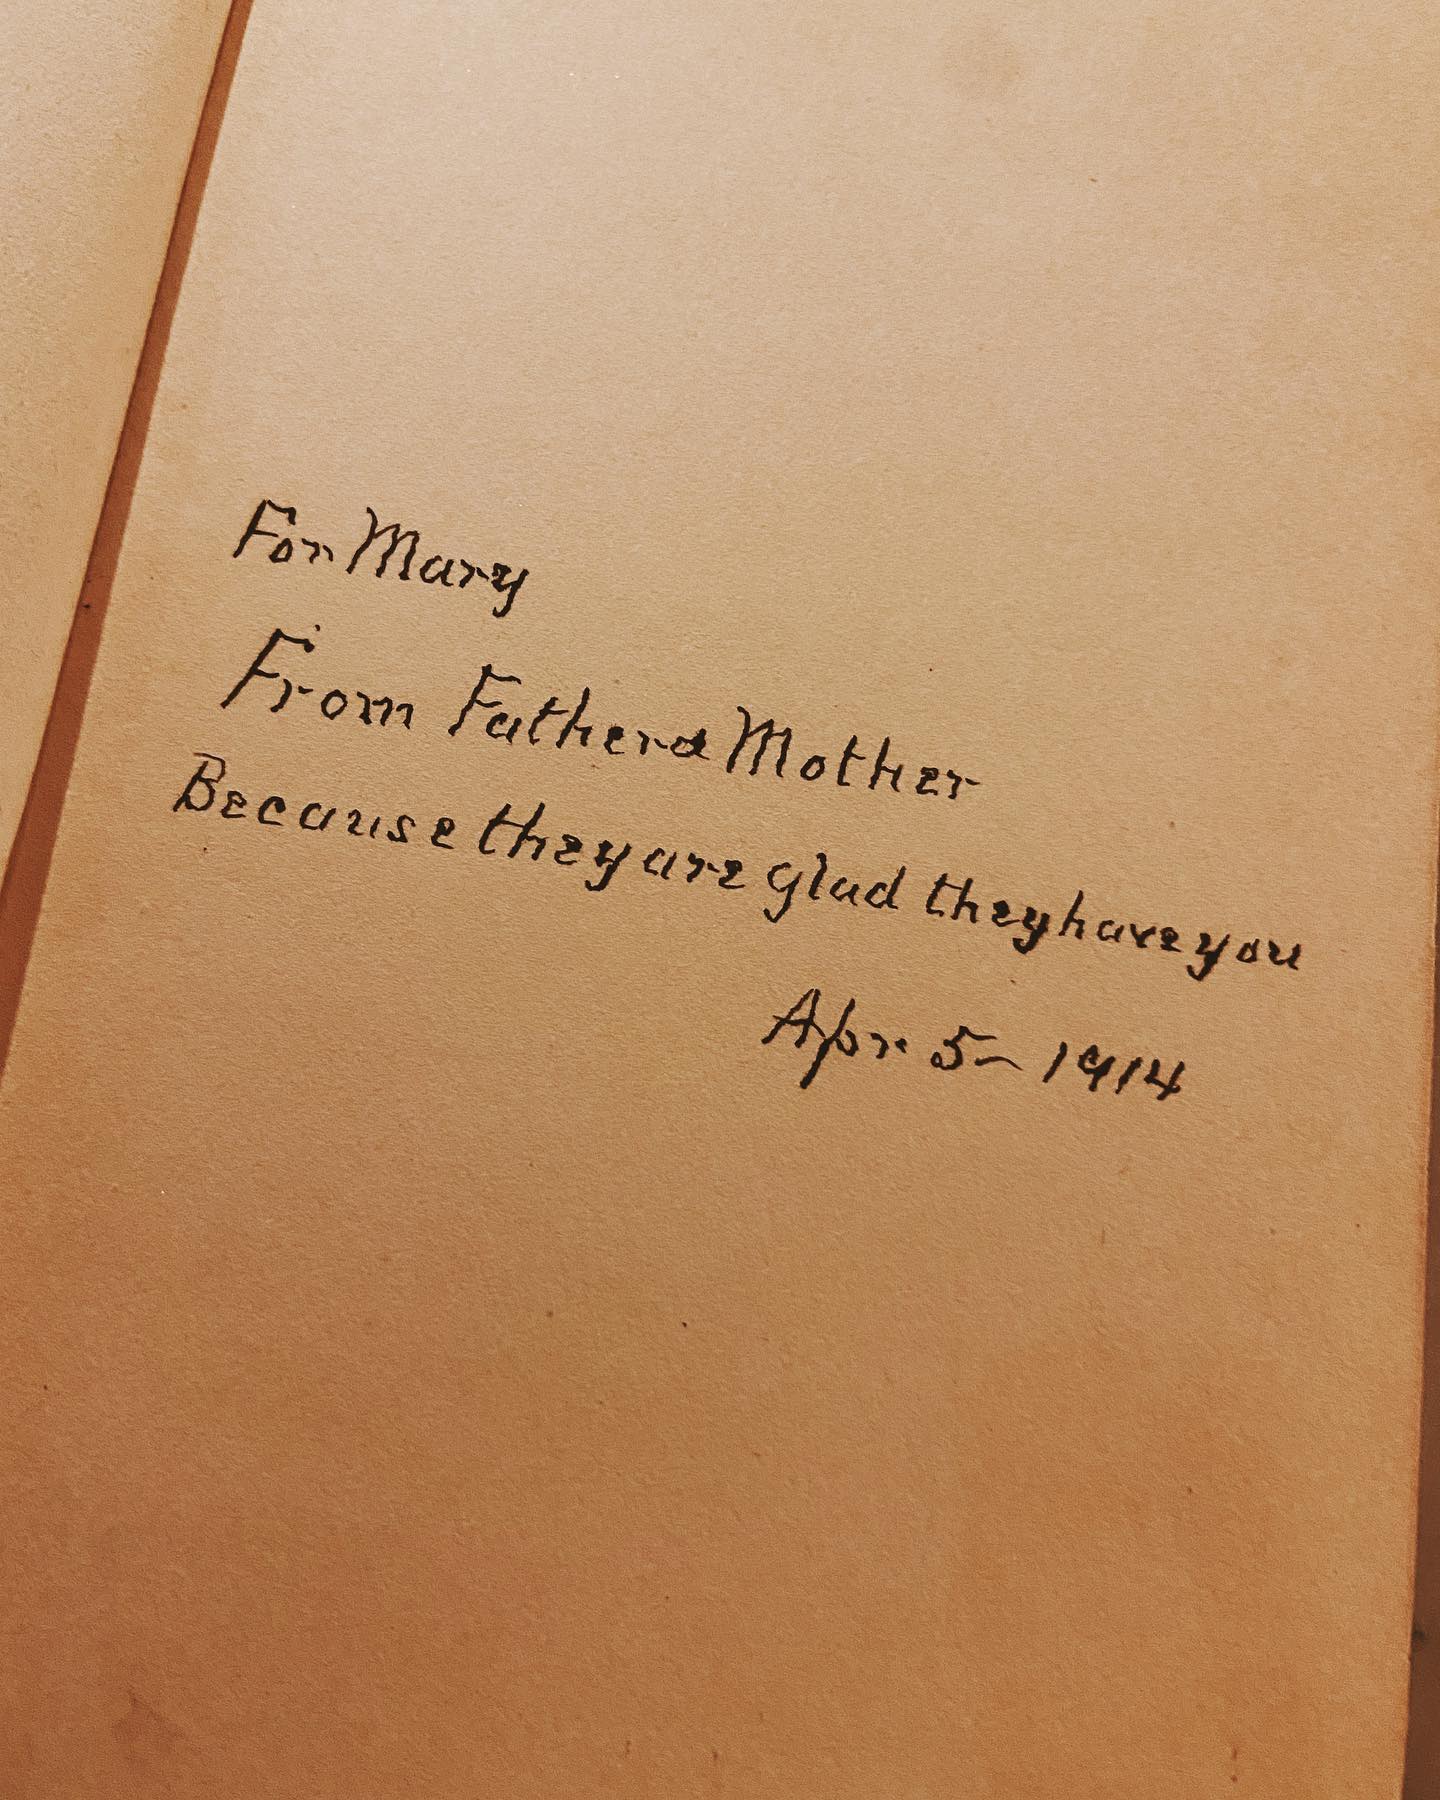 For Mary
From Father & Mother
Because they are glad they have you
Apr. 5 - 1914